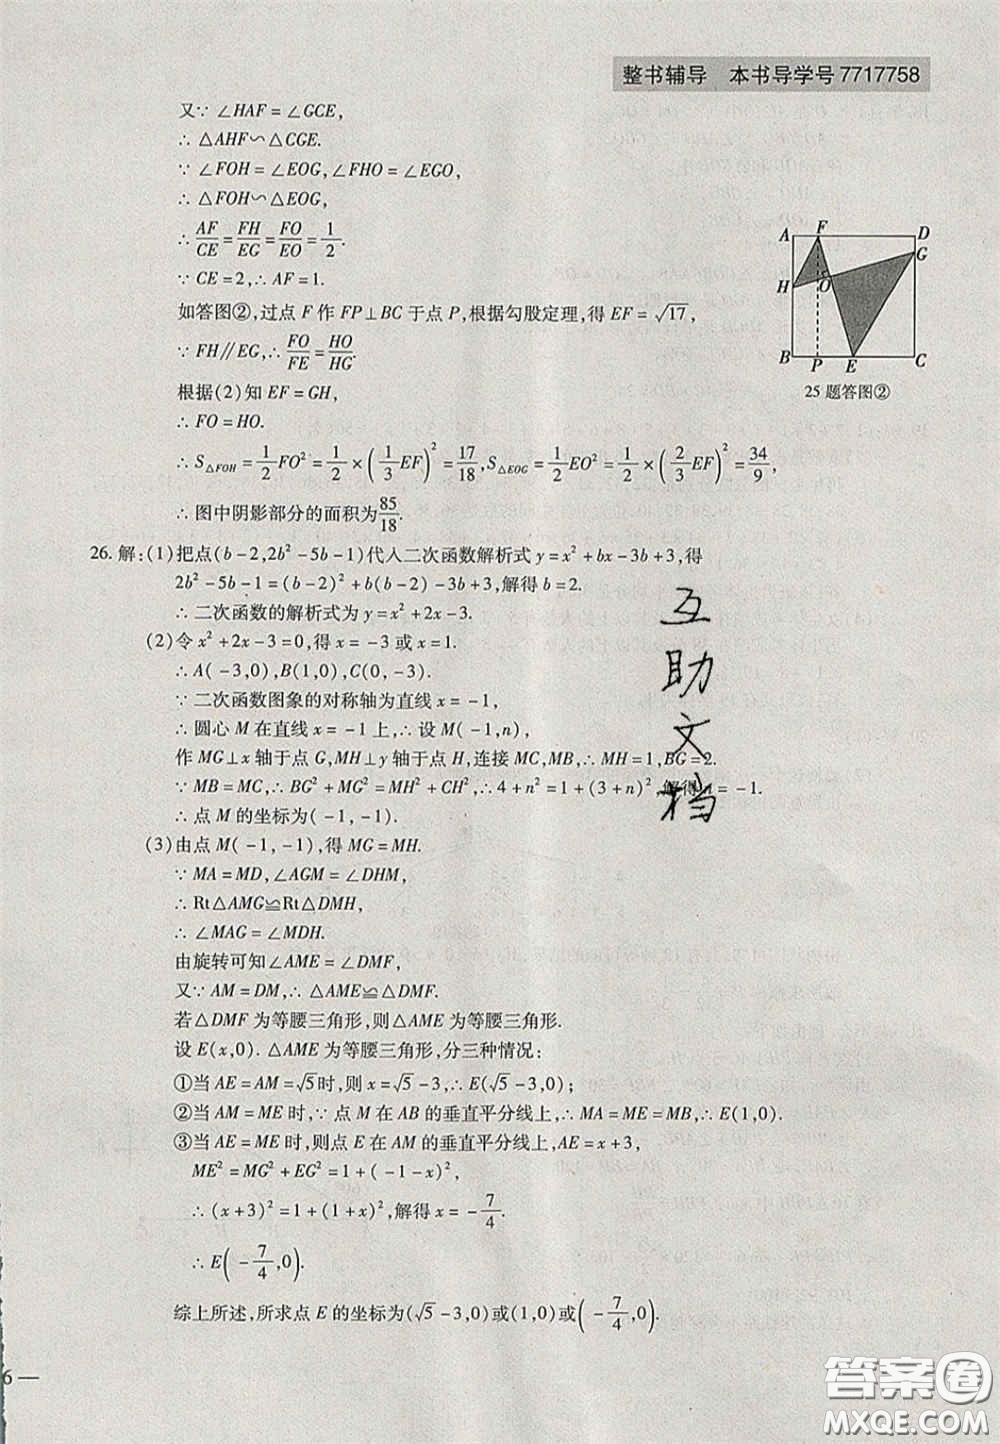 整书辅导 本书导学号7717758
又∵ ∠HAF=∠GCE,
∴ △AHF∽△CGE.
∵ ∠FOH=∠EOG,∠FHO=∠EGO,
∴ △FOH∽△EOG.
∴ AF/CE=FH/EG=FO/EO=1/2.
∵ CE=2,∴ AF=1.
如答图②,过点 F 作 FP⊥BC 于点 P,根据勾股定理,得 EF=√17,
∵ FH∥EG,∴ FO/FE=HO/HG.
根据(2)知 EF=GH,
∴ FO=HO.
∴ S△FOH=1/2FO²=1/2×(1/3EF)²=17/18,S△EOG=1/2EO²=1/2×(2/3EF)²=34/9,
∴ 图中阴影部分的面积为85/18.
A F D
G
H O
B P E C
25 题答图②
26. 解:(1)把点(b-2,2b²-5b-1)代入二次函数解析式 y=x²+bx-3b+3,得
2b²-5b-1=(b-2)²+b(b-2)-3b+3,解得 b=2.
∴ 二次函数的解析式为 y=x²+2x-3.
(2)令 x²+2x-3=0,得 x=-3或 x=1.
∴ A(-3,0),B(1,0),C(0,-3).
∵ 二次函数图象的对称轴为直线 x=-1,
∴ 圆心 M 在直线 x=-1上,∴ 设 M(-1,n),
作 MG⊥x 轴于点 G,MH⊥y 轴于点 H,连接 MC,MB,∴ MH=1,BG=2.
∵ MB=MC,∴ BG²+MG²=MH²+CH²,∴ 4+n²=1+(3+n)²,解得 n=-1.
∴ 点 M 的坐标为(-1,-1).
(3)由点 M(-1,-1),得 MG=MH.
∵ MA=MD,∠AGM=∠DHM,
∴ Rt△AMG≌Rt△DMH,
∴ ∠MAG=∠MDH.
由旋转可知∠AME=∠DMF,
又∵ AM=DM,∴ △AME≌△DMF.
若△DMF 为等腰三角形,则△AME 为等腰三角形.
设 E(x,0). △AME 为等腰三角形,分三种情况:
①当 AE=AM=√5时,则 x=√5-3,∴ E(√5-3,0);
②当 AM=ME 时,∵ 点 M 在 AB 的垂直平分线上,∴ MA=ME=MB,∴ E(1,0).
③当 AE=ME 时,则点 E 在 AM 的垂直平分线上,AE=x+3,
ME²=MG²+EG²=1+(-1-x)²,
∴ (x+3)²=1+(1+x)²,解得 x=-7/4.
∴ E(-7/4,0).
综上所述,所求点 E 的坐标为(√5-3,0)或(1,0)或(-7/4,0).
互
助
文
档
6 —
答案圈
MXQE.COM